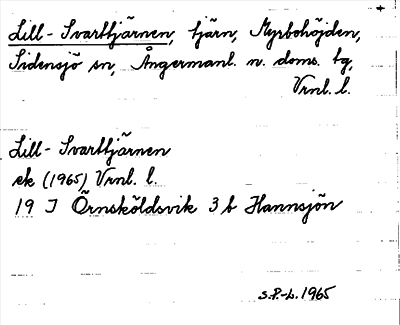 Lill-Svarttjärnen, tjärn, Myrbohöjden,
Sidensjö sn, Ångermanl. n. doms. tg,
Vrnl. l.
Lill-Svarttjärnen
ek (1965) Vrnl. l.
19 J Örnsköldsvik 3 b Hannsjön
S.P.-L. 1965